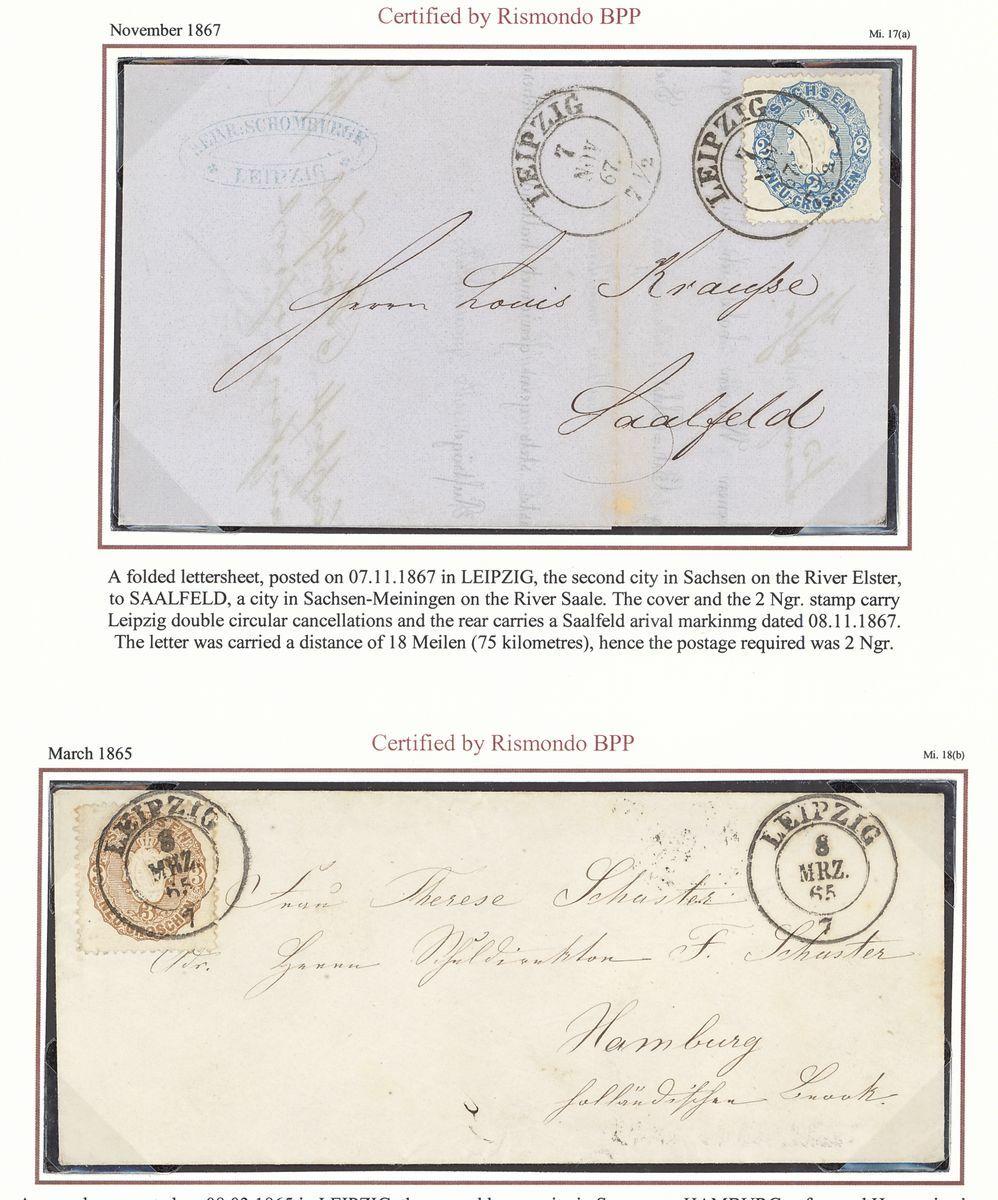 Certified by Rismondo BPP
November 1867
Mi. 17(a)
GEBR: SCHOMBURGK
LEIPZIG
LEIPZIG
7
NOV
67.
7 ½
LEIPZIG
7
SACHSEN
2 2
2
NEU-GROSCHEN
Herrn Louis Krauſse
Saalfeld
A folded lettersheet, posted on 07.11.1867 in LEIPZIG, the second city in Sachsen on the River Elster,
to SAALFELD, a city in Sachsen-Meiningen on the River Saale. The cover and the 2 Ngr. stamp carry
Leipzig double circular cancellations and the rear carries a Saalfeld arival markinmg dated 08.11.1867.
The letter was carried a distance of 18 Meilen (75 kilometres), hence the postage required was 2 Ngr.
Certified by Rismondo BPP
March 1865
Mi. 18(b)
LEIPZIG
8
MRZ.
65
7
3
3
GROSCHEN
LEIPZIG
8
MRZ.
65
7
Frau Therese Schuster
Adr. Herrn Schuldirektor F. Schuster
Hamburg
holländischen Broock.